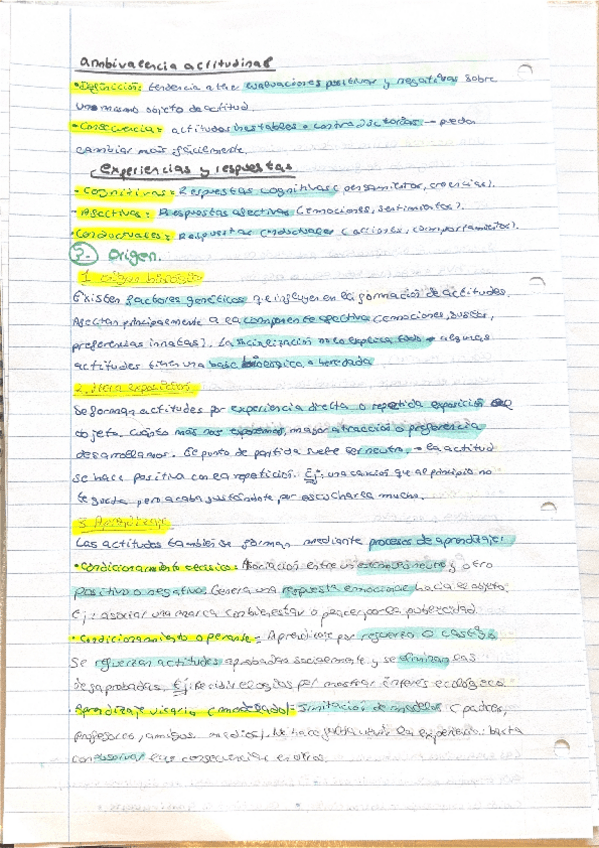 Ambivalencia actitudinal
• Definición: tendencia a tener evaluaciones positivas y negativas sobre
un mismo objeto de actitud.
• Consecuencia: actitudes inestables o contradictorias → pueden
cambiar más fácilmente.
Experiencias y respuestas
- Cognitivas: Respuestas cognitivas (pensamientos, creencias).
- Afectivas: Respuestas afectivas (emociones, sentimientos).
• Conductuales: Respuestas conductuales (acciones, comportamientos).
2. Origen.
1. origen biológico
Existen factores genéticos que influyen en la formación de actitudes.
Afectan principalmente a la componente afectiva (emociones, gustos,
preferencias innatas). La socialización no lo explica todo → algunas
actitudes tienen una base biológica o heredada
2. Mera exposición
Se forman actitudes por experiencia directa o repetida exposición al
objeto. Cuánto más nos exponemos, mayor atracción o preferencia
desarrollamos. El punto de partida suele ser neutro → la actitud
se hace positiva con la repetición. Ej: una canción que al principio no
te gusta, pero acaba gustándote por escucharla mucho.
3. Aprendizaje
Las actitudes también se forman mediante procesos de aprendizaje:
• Condicionamiento clásico: Asociación entre un estímulo neutro y otro
positivo o negativo. Genera una respuesta emocional hacia el objeto.
Ej: asociar una marca con bienestar o placer por la publicidad
• Condicionamiento operante: Aprendizaje por refuerzo o castigo
Se refuerzan actitudes aprobadas socialmente y se eliminan las
desaprobadas. Ej: Recibir elogios por mostrar interés ecológico.
• Aprendizaje vicario (modelado): Imitación de modelos (padres,
profesores, amigos, medios). No hace falta vivir la experiencia: basta
con observar las consecuencias en otros.